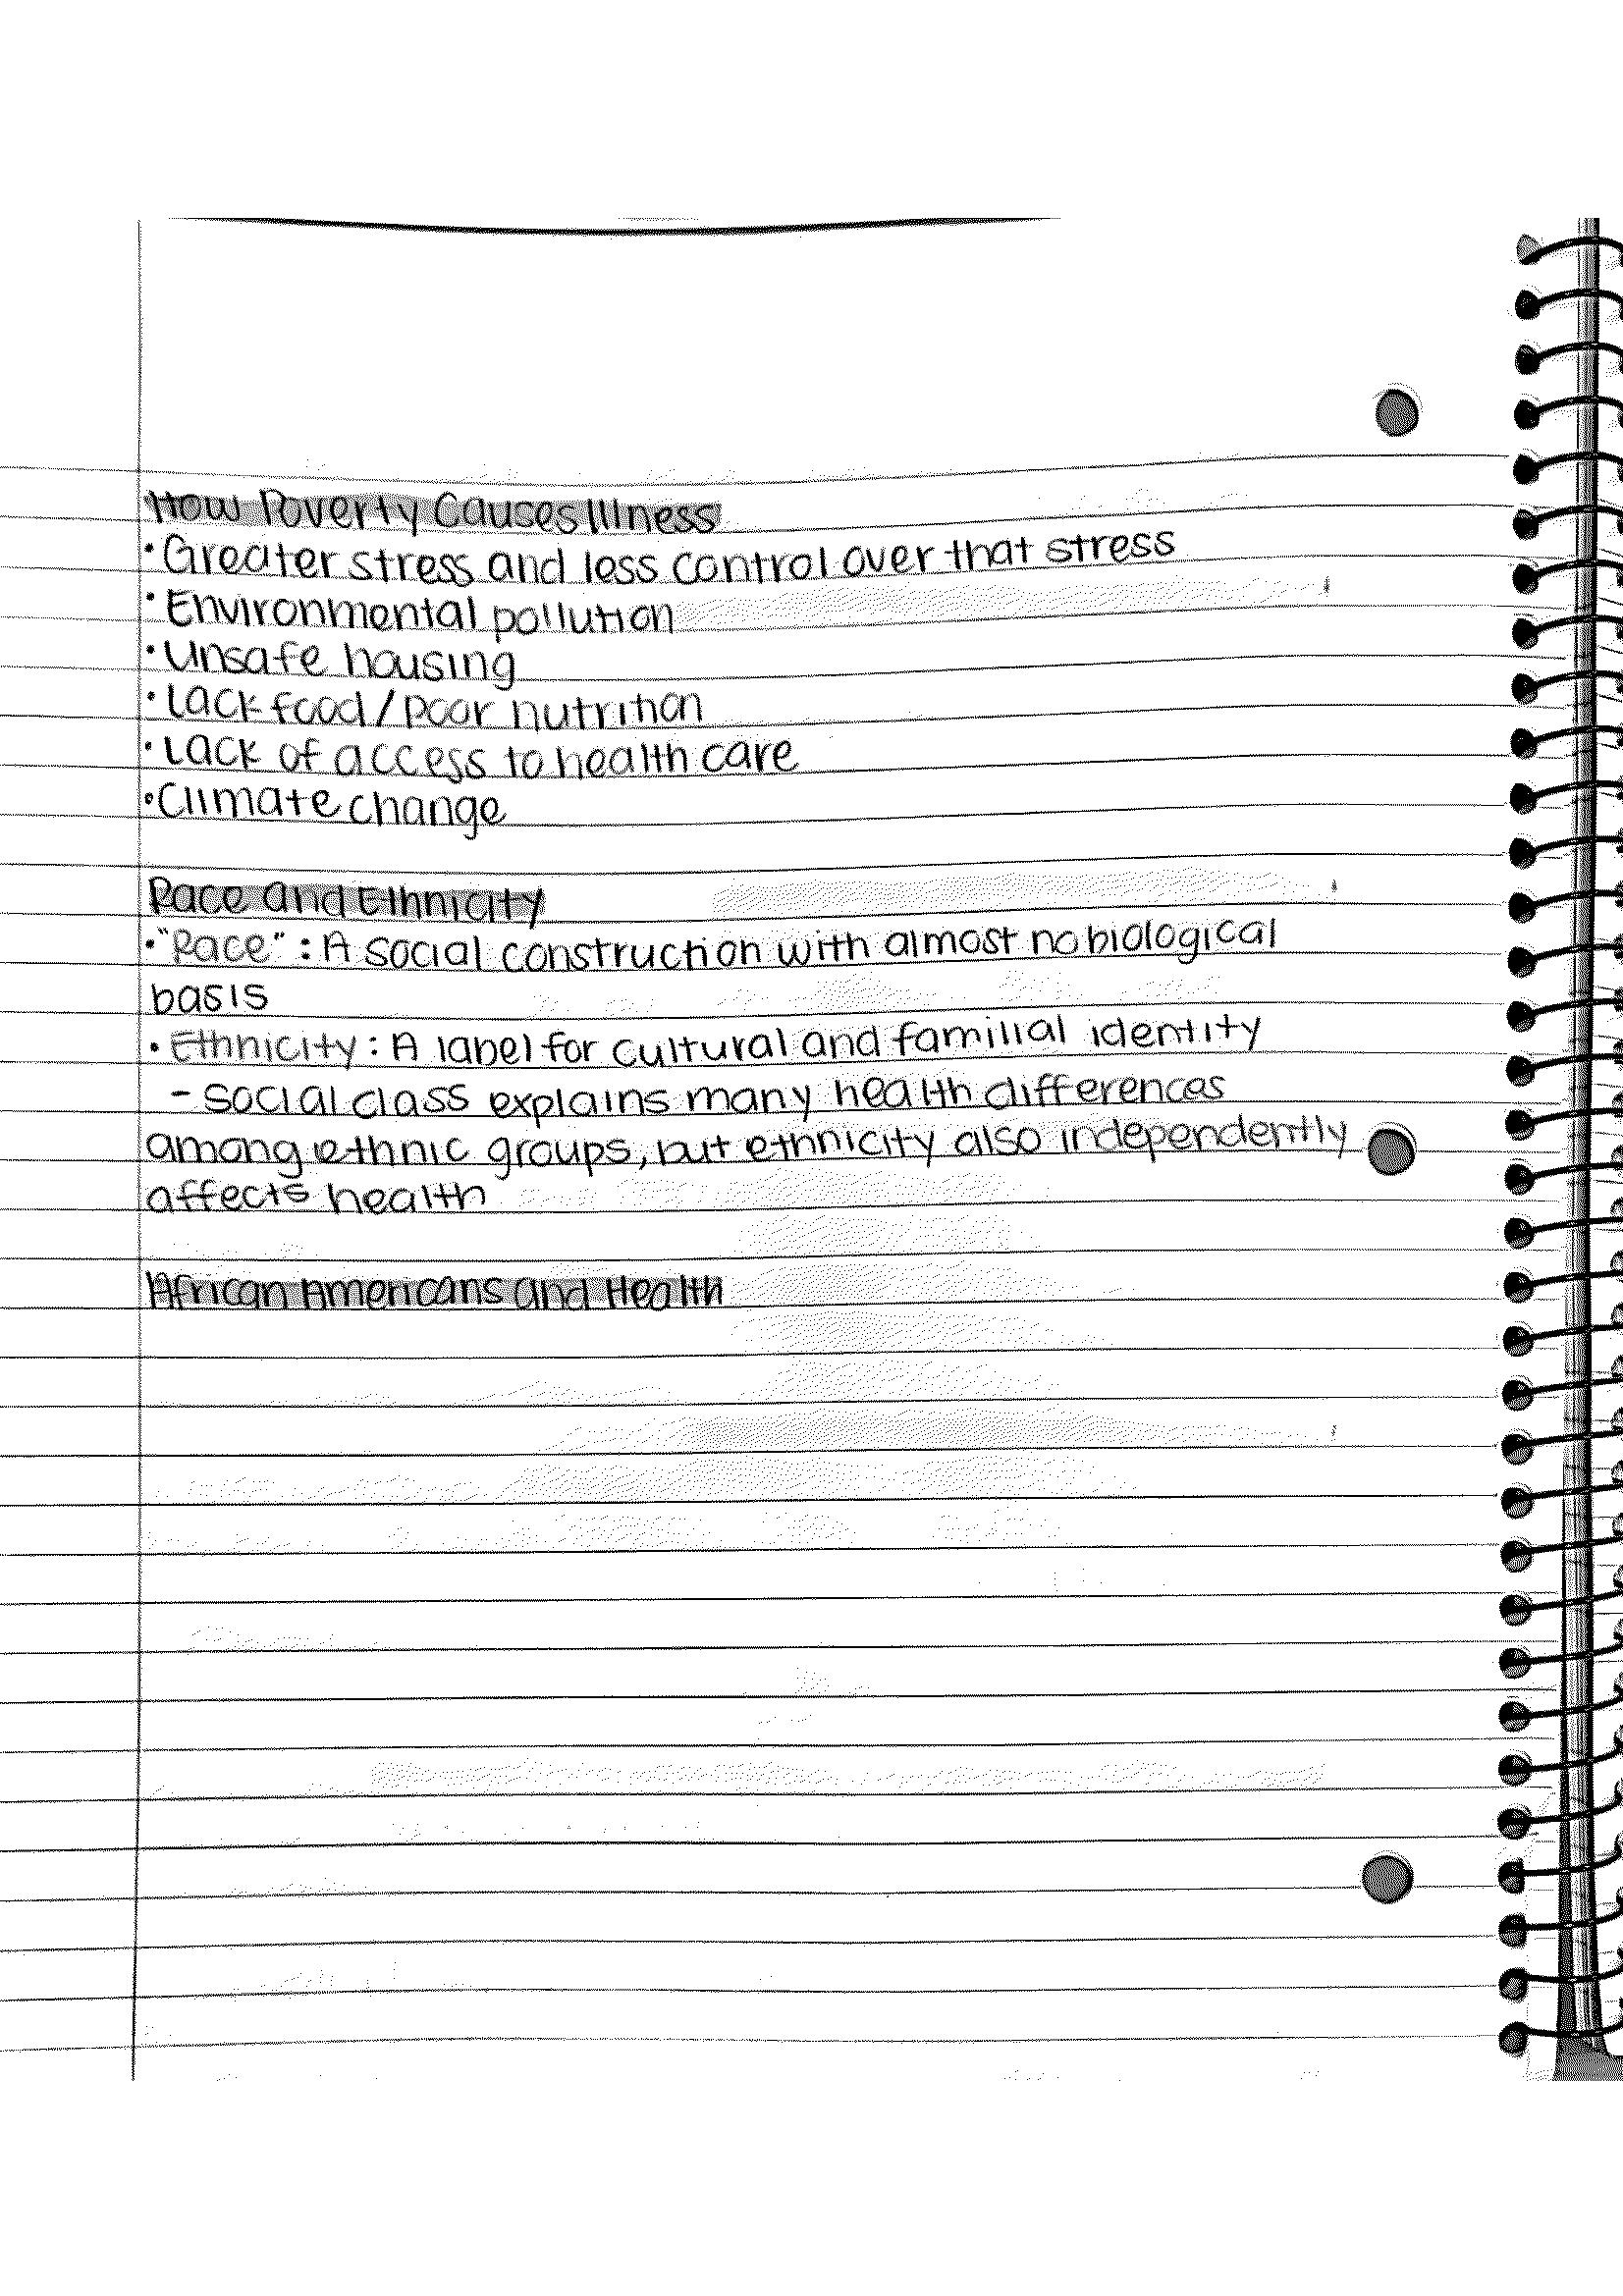 How Poverty Causes Illness
• Greater stress and less control over that stress
• Environmental pollution
• Unsafe housing
• Lack food / poor nutrition
• Lack of access to health care
• Climate change
Race and Ethnicity
• "Race" : A social construction with almost no biological
basis
• Ethnicity : A label for cultural and familial identity
- Social class explains many health differences
among ethnic groups, but ethnicity also independently
affects health
African Americans and Health